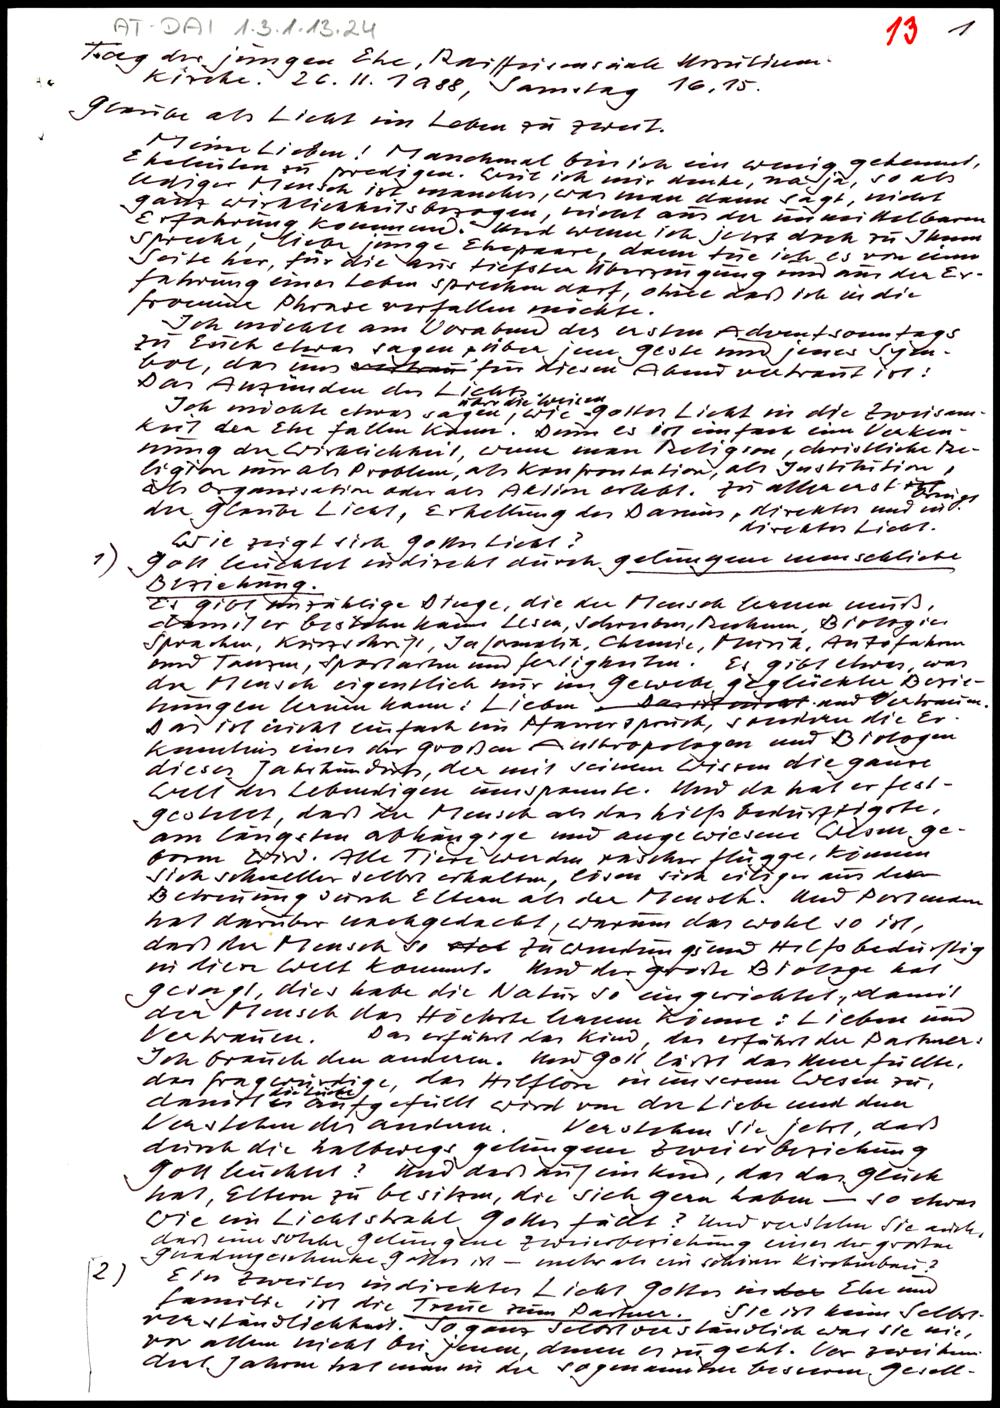 AT-DAI 1.3.1.13.24
13 1
Tag der jungen Ehe, Raiffeisensäale Ursulinen-
kirche. 26.11.1988, Samstag 16.15.
Glaube als Licht im Leben zu zweit.
Meine Lieben! Manchmal bin ich ein wenig gehemmt,
Eheleuten zu predigen. Weil ich mir denke, na ja, so als
lediger Mensch ist manches, was man dann sagt, nicht
ganz wirklichkeitsbezogen, nicht aus der unmittelbaren
Erfahrung kommend. Und wenn ich jetzt doch zu Ihnen
spreche, liebe junge Ehepaare, dann tue ich es von einer
Seite her, für die aus tiefster Überzeugung und aus der Er-
fahrung eines Leben sprechen darf, ohne daß ich in die
fromme Phrase verfallen möchte.
Ich möchte am Vorabend des ersten Adventsonntags
zu Euch etwas sagen über jene Geste und jenes Sym-
bol, das uns für diesen Abend vertraut ist:
Das Anzünden des Lichts
Ich möchte etwas sagen, über die Weisen wie Gottes Licht in die Zweisam-
keit der Ehe fallen kann. Denn es ist einfach eine Verken-
nung der Wirklichkeit, wenn man Religion, christliche Re-
ligion nur als Problem, als Konfrontation, als Institution,
als Organisation oder als Aktion erlebt. Zu aller erst bringt
der Glaube Licht, Erhellung des Daseins, direktes und in-
direktes Licht.
Wie zeigt sich Gottes Licht?
1) Gott leuchtet indirekt durch gelungene menschliche
Beziehung.
Es gibt unzählige Dinge, die der Mensch lernen muß,
damit er bestehn kann Lesen, Schreiben, Rechnen, Biologie
Sprachen, Kurzschrift, Informatik, Chemie, Musik, Autofahren
und Tanzen, Sportarten und Fertigkeiten. Es gibt etwas, was
der Mensch eigentlich nur im Gewebe geglückter Bezie-
hungen lernen kann: Lieben und Vertrauen.
Das ist nicht einfach ein Pfarrerspruch, sondern die Er-
kenntnis eines der großen Anthropologen und Biologen
dieses Jahrhunderts, der mit seinem Wissen die ganze
Welt des Lebendigen umspannte. Und da hat er fest-
gestellt, daß der Mensch als das hilfsbedürftigste,
am längsten abhängige und angewiesene Wesen ge-
boren wird. Alle Tiere werden rascher flügge, können
sich schneller selbst erhalten, lösen sich eiliger aus der
Betreuung durch Eltern als der Mensch. Und Portmann
hat darüber nachgedacht, warum das wohl so ist,
daß der Mensch so zuwendungs und hilfsbedürftig
in diese Welt kommt. Und der große Biologe hat
gesagt, dies habe die Natur so eingerichtet, damit
der Mensch das Höchste lernen könne: Lieben und
Vertrauen. Das erfährt das Kind, das erfährt der Partner:
Ich brauch den anderen. Und Gott läßt das Unerfüllte,
das fragwürdige, das Hilflose in unserem Wesen zu,
damit die Lücke aufgefüllt wird von der Liebe und dem
Verstehen des anderen. Verstehen Sie jetzt, daß
durch die halbwegs gelungene Zweierbeziehung
Gott leuchtet? Und daß auf ein Kind, das das Glück
hat, Eltern zu besitzen, die sich gern haben — so etwas
wie ein Lichtstrahl Gottes fällt? Und verstehen Sie auch,
daß eine solche gelungene Zweierbeziehung eines der großen
Gnadengeschenke Gottes ist — mehr als ein schöner Kirchenbau?
2) Ein zweites indirektes Licht Gottes in Ehe und
Familie ist die Treue zum Partner. Sie ist keine Selbst-
verständlichkeit. So ganz selbstverständlich war sie nie,
vor allem nicht bei jenen, denen es zu gut geht. Vor zweihun-
dert Jahren hat man in der sogenannten besseren Gesell-